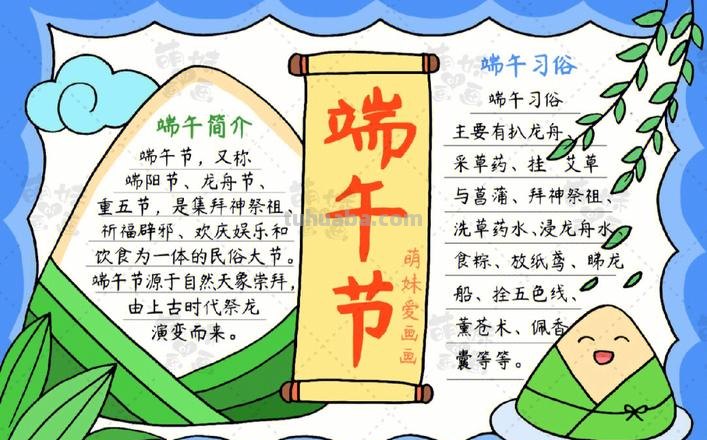 端午简介
端午节，又称
端阳节、龙舟节、
重五节，是集拜神祭祖、
祈福辟邪、欢庆娱乐和
饮食为一体的民俗大节。
端午节源于自然天象崇拜，
由上古时代祭龙
演变而来。
端午节
萌妹爱画画
tuhuaba.com
端午习俗
端午习俗
主要有扒龙舟、
采草药、挂 艾草
与菖蒲、拜神祭祖、
洗草药水、浸龙舟水、
食粽、放纸鸢、睇龙
船、拴五色线、
薰苍术、佩香
囊等等。